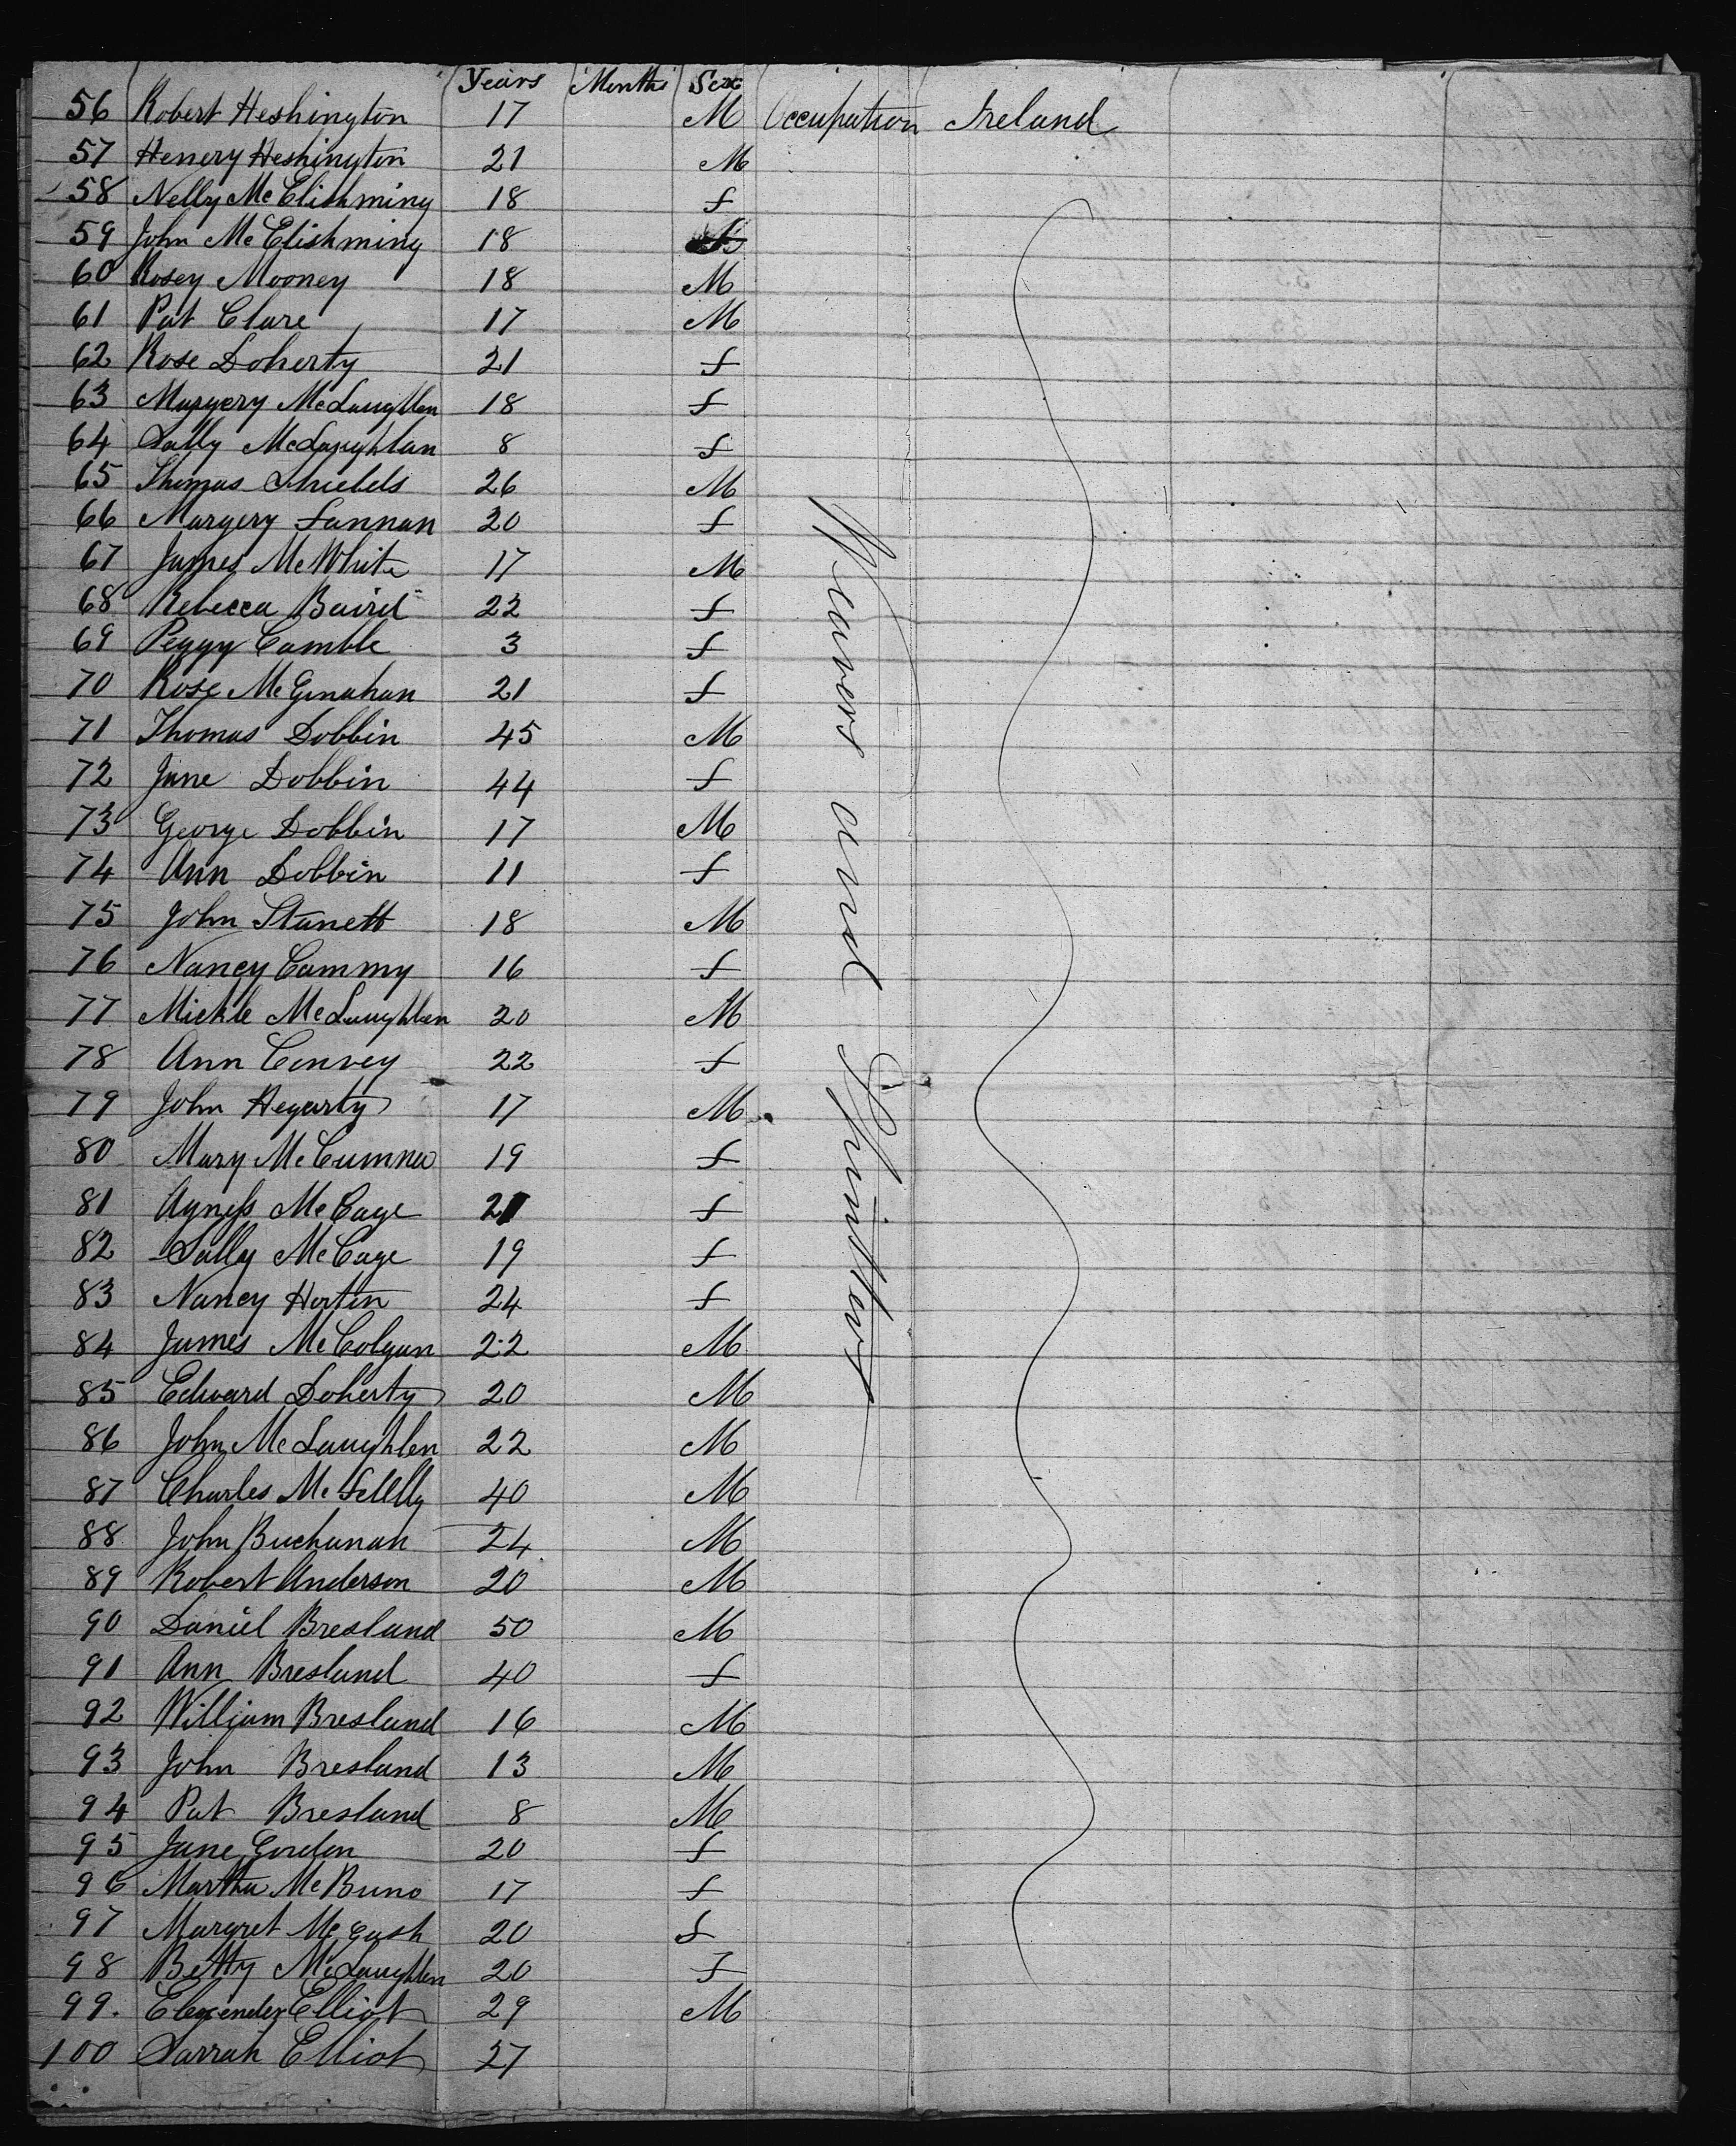 Years Months Sex
56 Robert Heshington 17 M Occupation Ireland
57 Henery Heshington 21 M
58 Nelly McElishming 18 f
59 John McElishming 18
60 Rosey Mooney 18 M
61 Pat Clare 17 M
62 Rose Doherty 21 f
63 Margery McLaughlen 18 f
64 Sally McLaughlan 8 f
65 Thomas Shiebels 26 M
66 Margery Fannan 20 f
67 James McWhite 17 M
68 Rebecca Baird 22 f
69 Peggy Camble 3 f
70 Rose McGinahan 21 f
71 Thomas Dobbin 45 M
72 Jane Dobbin 44 f
73 George Dobbin 17 M
74 Ann Dobbin 11 f
75 John Stanett 18 M
76 Nancy Cammy 16 f
77 Mickle McLaughlen 20 M
78 Ann Convey 22 f
79 John Hegarty 17 M
80 Mary 19 f
81 Agness McCage 21 f
82 Sally McCage 19 f
83 Nancy Hortin 24 f
84 James McColgan 22 M
85 Edward Doherty 20 M
86 John McLaughlen 22 M
87 Charles 40 M
88 John Buchanan 24 M
89 Robert Anderson 20 M
90 Daniel Bresland 50 M
91 Ann Bresland 40 f
92 William Bresland 16 M
93 John Bresland 13 M
94 Pat Bresland 8 M
95 Jane Gordon 20 f
96 Martha McBuno 17 f
97 Margret McCash 20 f
98 Betty McLaughlen 20 f
99. Elexender Elliot 29 M
100 Sarrah Elliot 27
Weavers and Spinsters